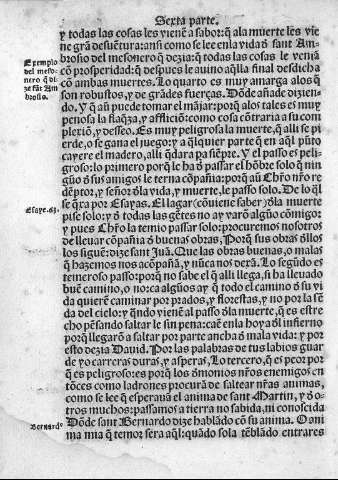 Sexta parte.
y todas las cosas les vienē a sabor: q̄ ala muerte les vie
ne grā desuētura: ansi como se lee enla vida d̄ sant Am-
brosio del mesonero q̄ dezia: q̄ todas las cosas le veniā
cō prosperidad: q̄ despues le auino aq̄lla final desdicha
cō ambas muertes. Lo quarto es muy amarga alos q̄
son robustos, y de grādes fuerças. Dōde añade dizien-
do. Y q̄ aū puede tomar el mājar: porq̄ alos tales es muy
penosa la flaq̄za, y aflicciō: como cosa cōtraria a su com
plexiō, y desseo. Es muy peligrosa la muerte, q̄ alli se pi
erde, o se gana el juego: y a q̄lquier parte q̄ en aq̄l pūto
cayere el madero, alli q̄dara pa siēpre. Y el passo es peli-
groso: lo primero porq̄ le ha d̄ passar el hōbre solo q̄ nin
gūo d̄ sus amigos le terna cōpañia: porq̄ aū Chr̄o nr̄o re
dēptor, y señor d̄la vida, y muerte, le passo solo. De lo q̄l
se q̄xa por Esayas. El lagar (cōuiene saber) d̄la muerte
pise solo: y d̄ todas las gētes no ay varō algūo cōmigo:
y pues Chr̄o la temio passar solo: procuremos nosotros
de lleuar cōpañia d̄ buenas obras, Porq̄ sus obras d̄llos
los siguē: dize sant Juā. Que las obras buenas, o malas
q̄ hazemos nos acōpañā, y nūca nos dexā. Lo segūdo es
temeroso passo: porq̄ no sabe el q̄ alli llega, si ha lleuado
buē camino, o no: ca algūos ay q̄ todo el camino d̄ su vi
da quierē caminar por prados, y florestas, y no por la sē
da del cielo: y q̄ndo vienē al passo d̄la muerte, q̄ es estre
cho pēsando saltar le sin pena: caē enla hoya d̄l infierno
porq̄ llegarō a saltar por parte ancha d̄ mala vida: y por
esto dezia Dauid. Por las palabras de tus labios guar
de yo carreras duras, y asperas. Lo tercero, q̄ es peor por
q̄ es peligroso: es porq̄ los d̄monios nr̄os enemigos en
tōces como ladrones procurā de saltear nr̄as animas,
como se lee q̄ esperauā el anima de sant Martin, y d̄ o-
tros muchos: passamos a tierra no sabida, ni conoscida
Dōde sant Bernardo dize hablādo cōn su anima. O ani
ma mia q̄ temor sera aq̄l: quādo sola tēblādo entrares
Exemplo
del meso-
nero q̄ di-
ze sāt Am
brosio.
Esaye.63.
Bernardº